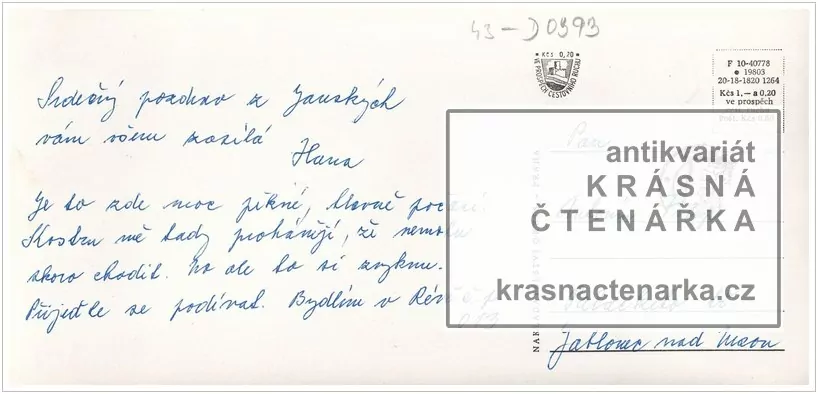 43-D0393
Kčs 0,20
VE PROSPĚCH CESTOVNÍHO RUCHU
F 10-40778
e 19803
20-18-1820 1264
Kčs 1,- a 0,20
ve prospěch
Srdečný pozdrav z Janských
vám všem zasílá
Hana
Je to zde moc pěkné, hlavně
Kostru mě tady prohánějí, že
skoro chodit. No ale to si zvyknu.
Přijeďte se podívat. Bydlím v
Pan
antikvariát
KRÁSNÁ
ČTENÁŘKA
krasnactenarka.cz
Jablonec nad Nisou